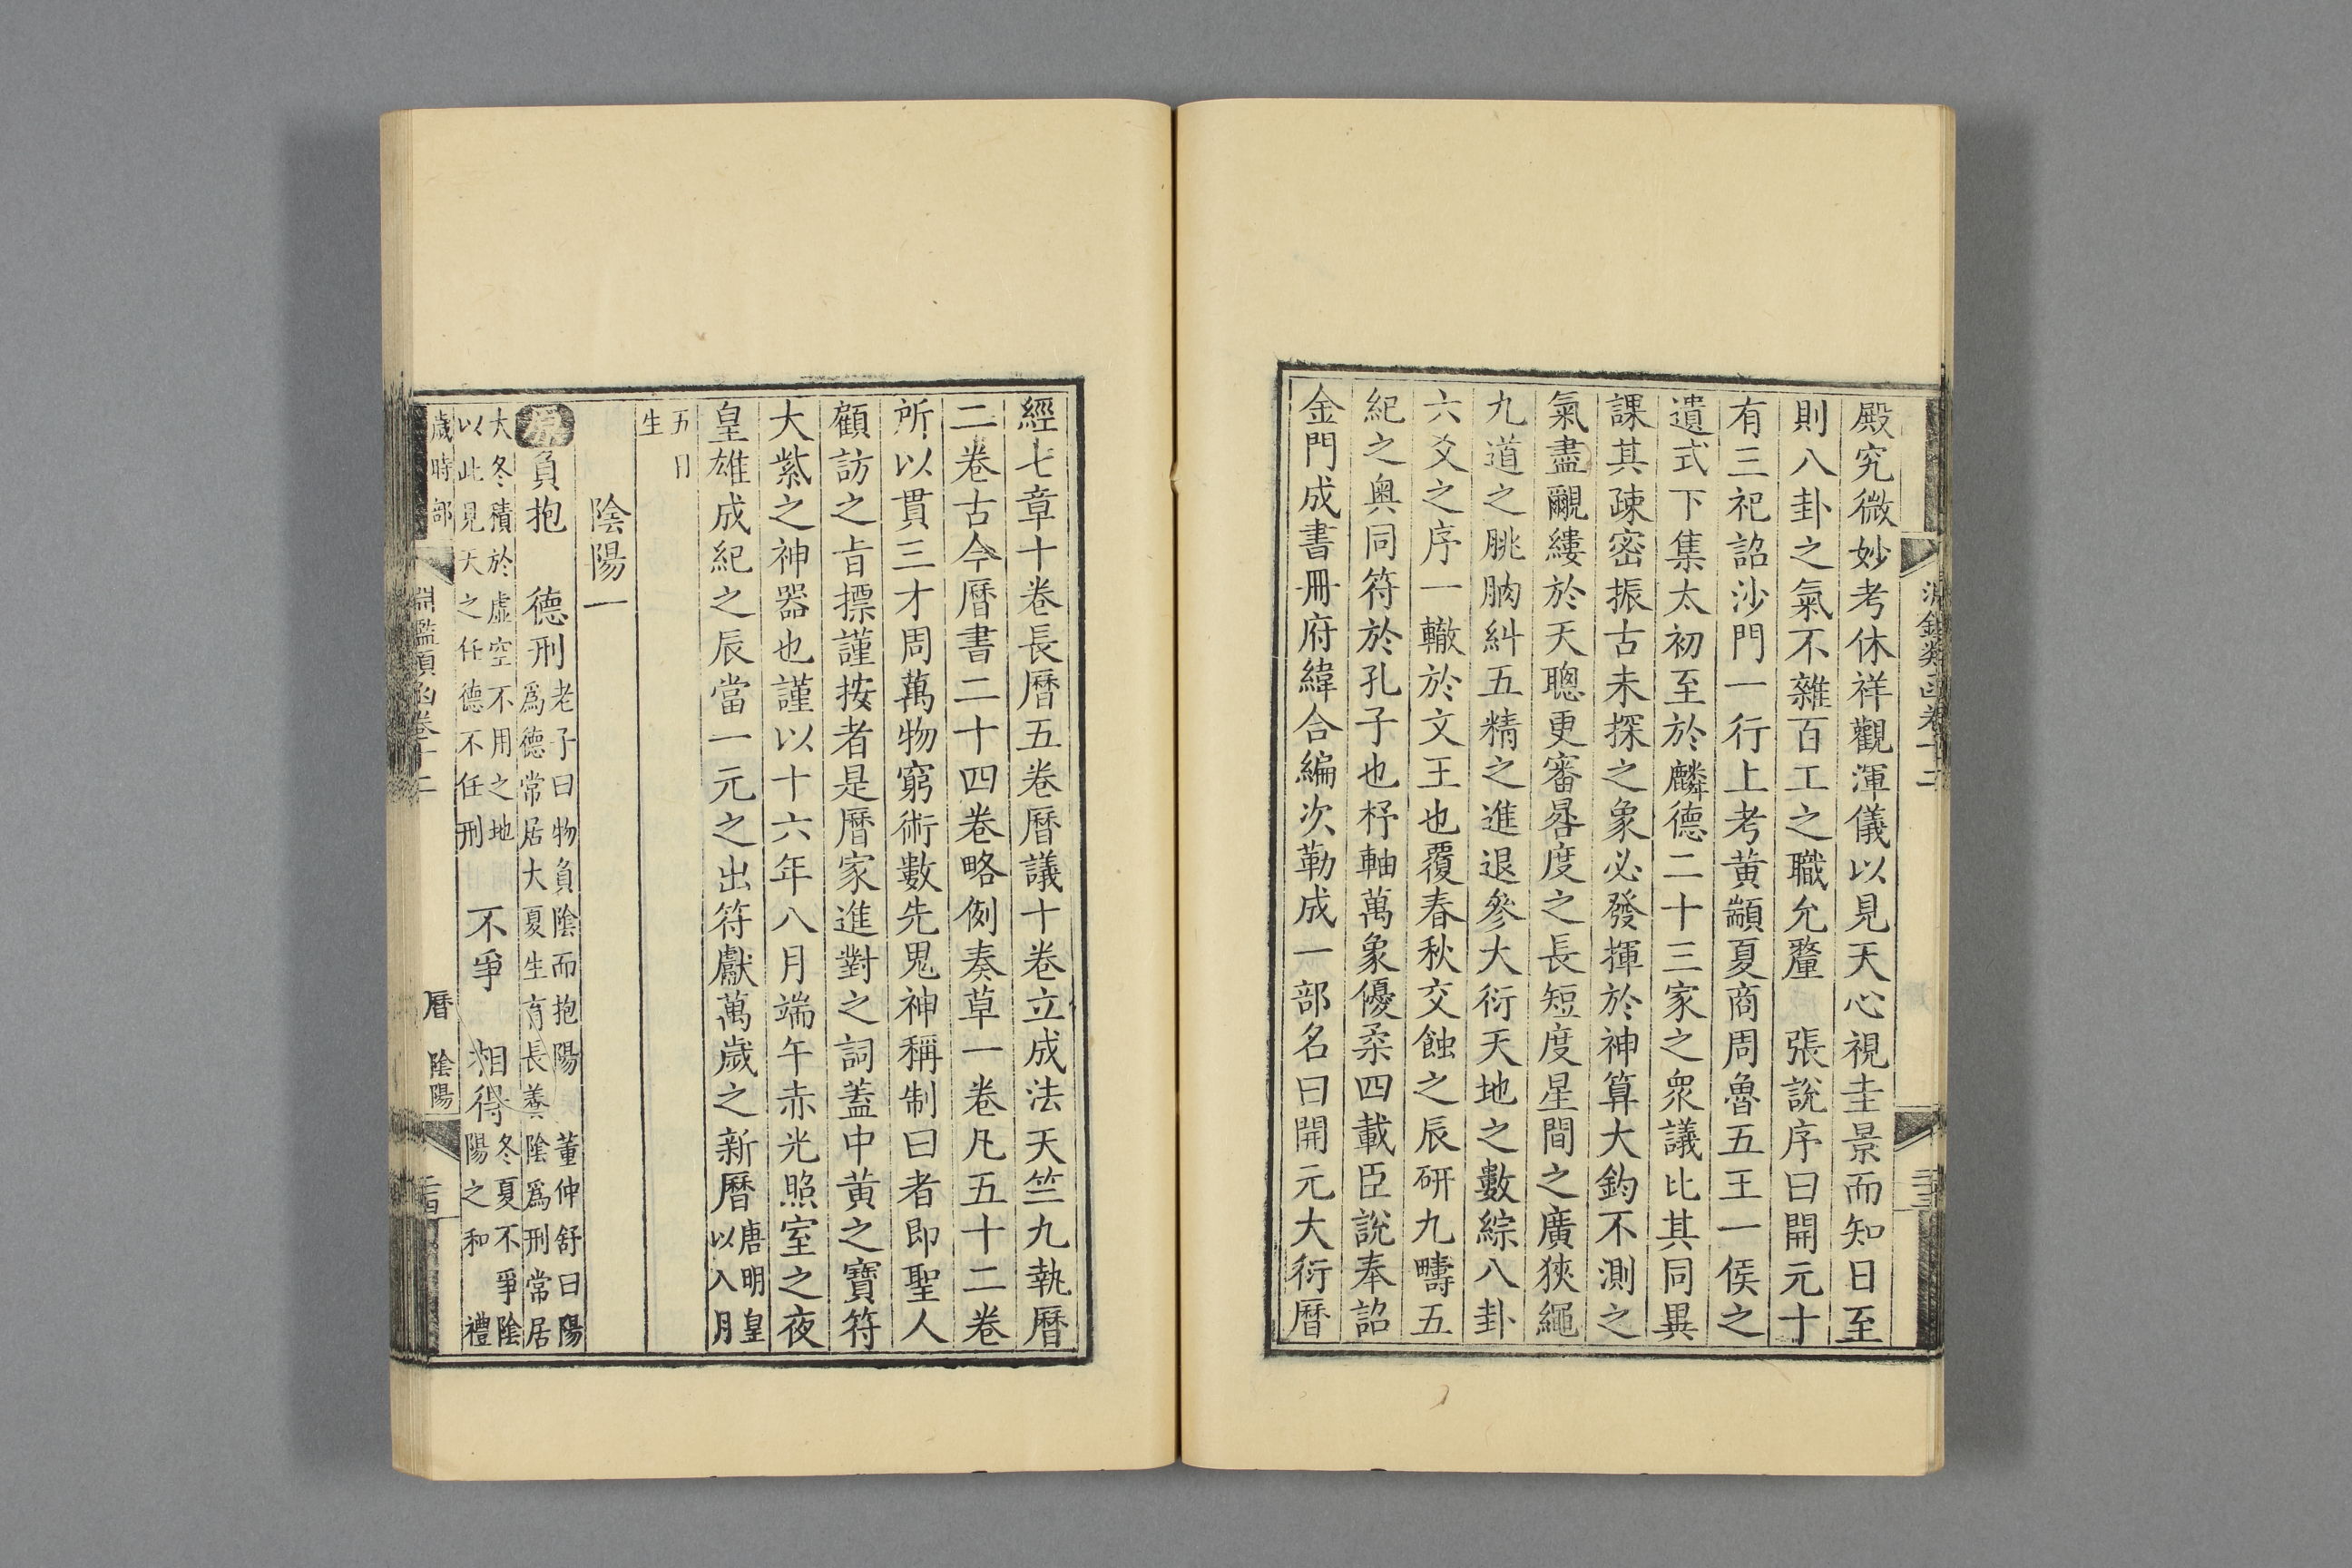 殿究微妙考休祥觀渾儀以見天心視圭景而知日至
則八卦之氣不雜百工之職允釐　張說序曰開元十
有三祀詔沙門一行上考黃顓夏商周魯五王一侯之
遺式下集太初至於麟德二十三家之衆議比其同異
課其疎密振古未探之象必發揮於神算大鈞不測之
氣盡覼縷於天聰更審晷度之長短度星間之廣狹繩
九道之朓朒糾五精之進退參大衍天地之數綜八卦
六爻之序一轍於文王也覆春秋交蝕之辰研九疇五
紀之奥同符於孔子也杼軸萬象優柔四載臣說奉詔
金門成書冊府緯合編次勒成一部名曰開元大衍曆
淵鑑類函卷十二
經七章十卷長曆五卷曆議十卷立成法天竺九執曆
二卷古今曆書二十四卷略例奏草一卷凡五十二卷
所以貫三才周萬物窮術數先鬼神稱制曰者即聖人
顧訪之旨標謹按者是曆家進對之詞蓋中黃之寶符
大紫之神器也謹以十六年八月端午赤光照室之夜
皇雄成紀之辰當一元之出符獻萬歲之新曆唐明皇
以入月
五日
生
陰陽一
原負抱　德刑老子曰物負陰而抱陽　董仲舒曰陽
爲德常居大夏生育長養陰爲刑常居
大冬積於虛空不用之地
以此見天之任德不任刑　不爭　相得冬夏不爭陰
陽之和　禮
歲時部
淵鑑類函卷十二
曆　陰陽